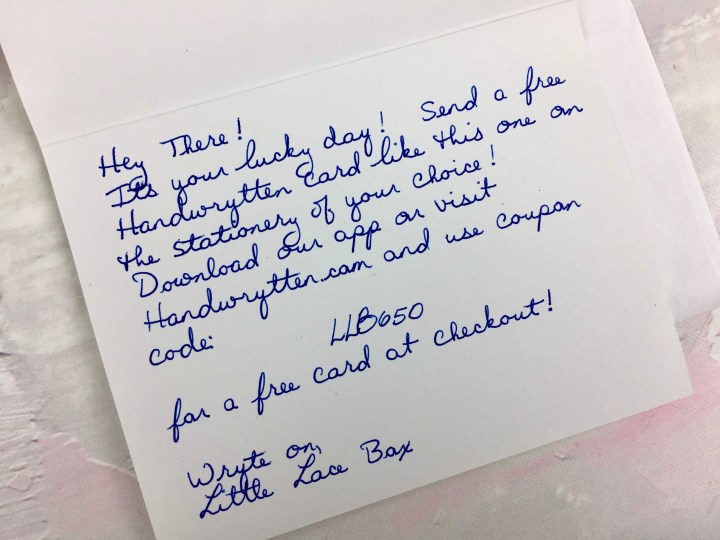 Hey There!
It's your lucky day! Send a free
Handwrytten Card like this one on
the stationery of your choice!
Download our app or visit
Handwrytten.com and use coupon
code:
LLB650
for a free card at checkout!
Wryte on,
Little Lace Box